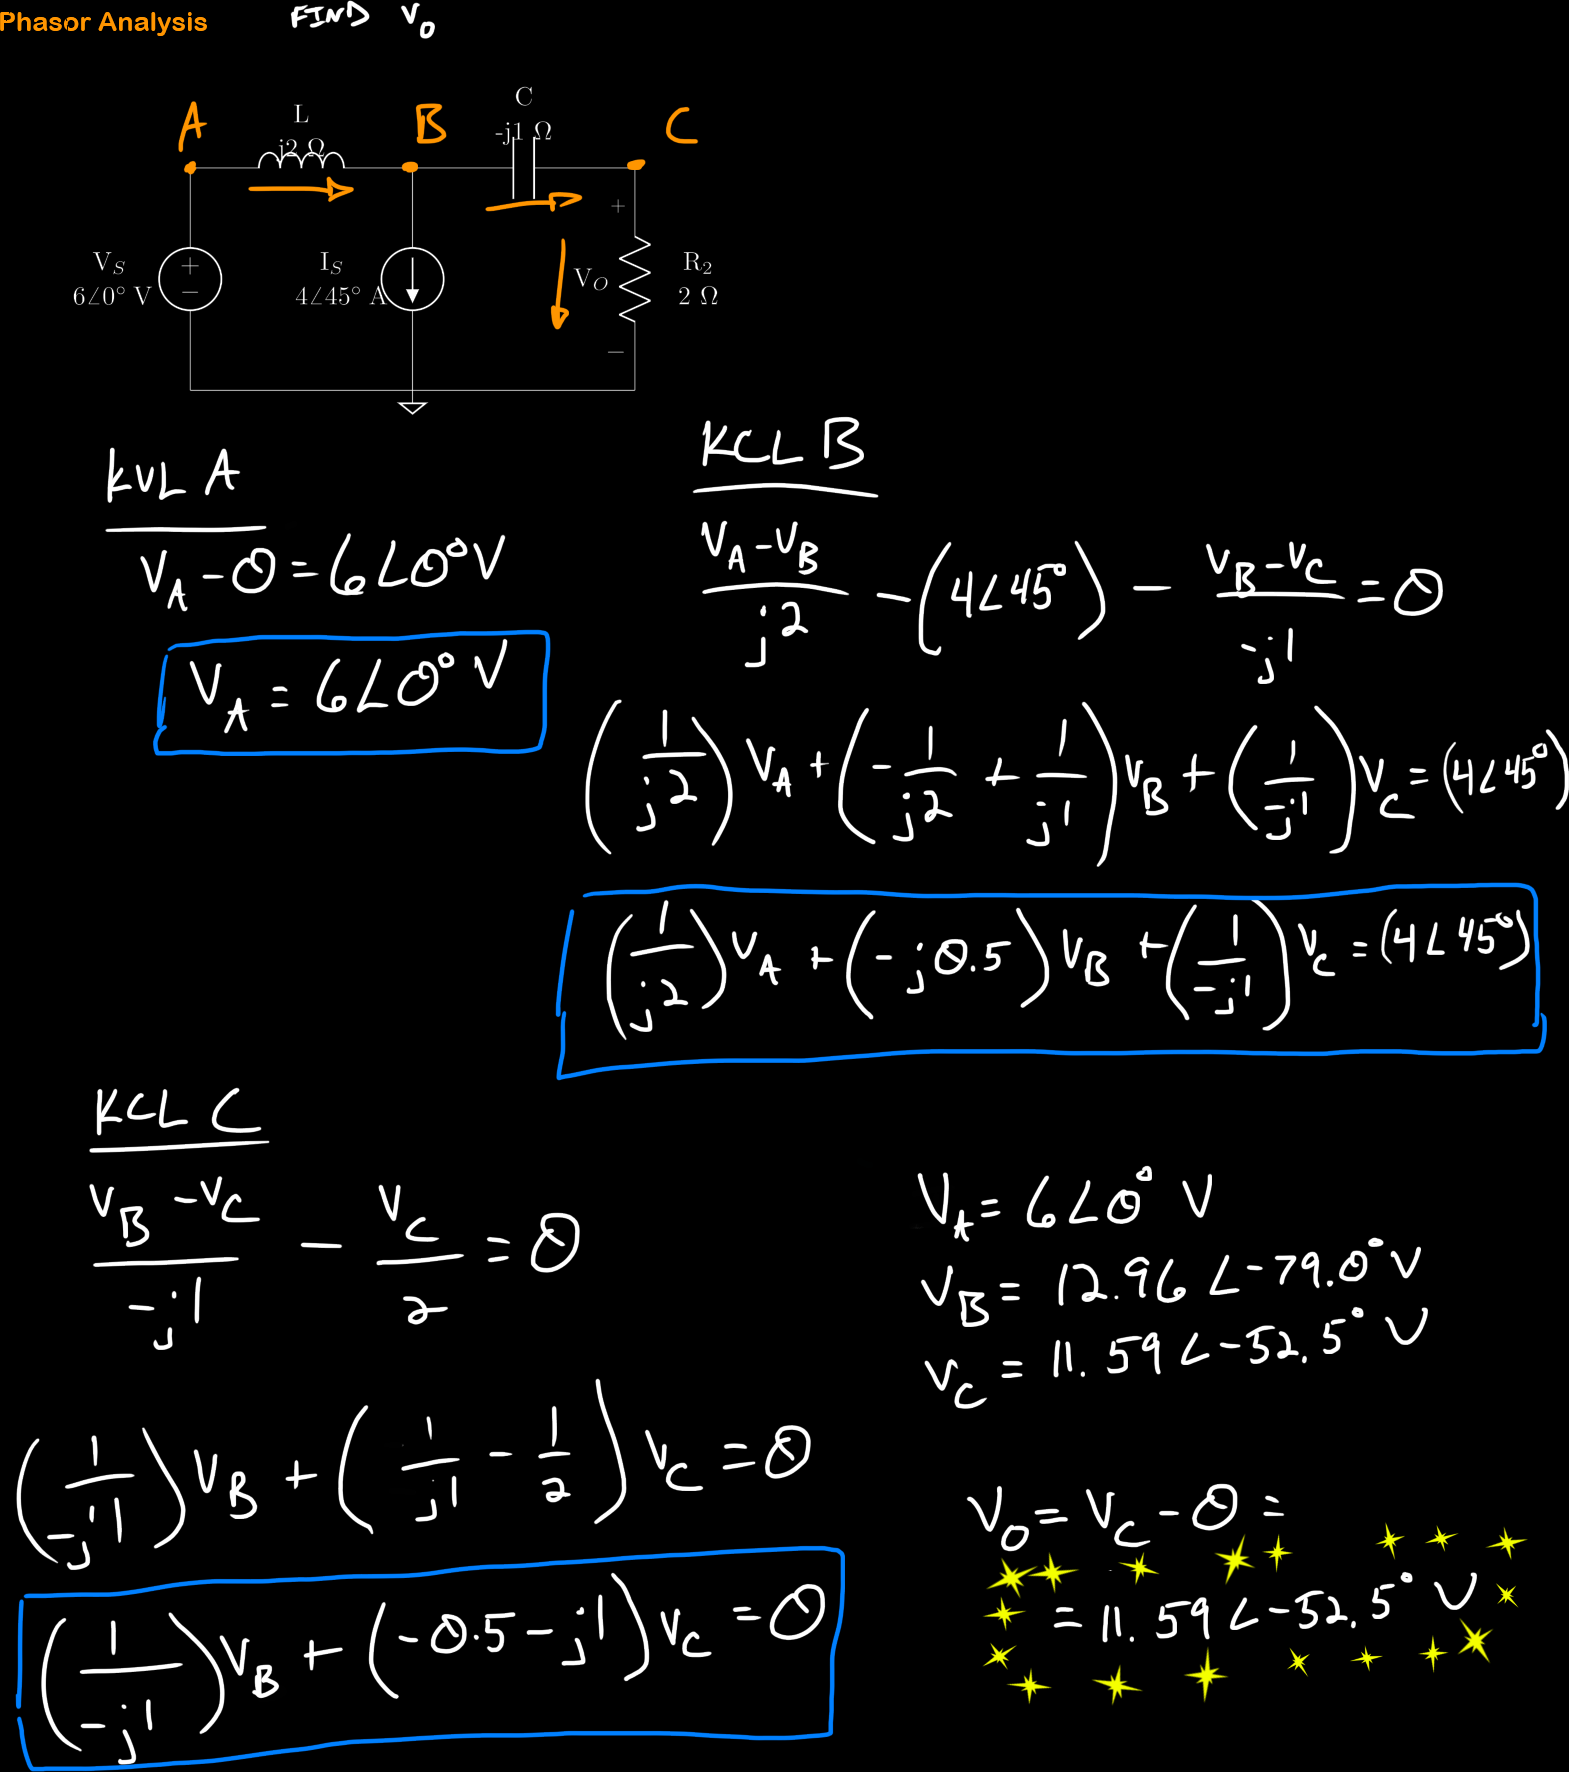 Phasor Analysis FIND V_O
A L j2 Ω B C -j1 Ω C
+
V_S 6∠0° V + −
I_S 4∠45° A
V_O
R_2 2 Ω
−
KVL A
V_A - 0 = 6∠0° V
V_A = 6∠0° V
KCL B
(V_A - V_B)/(j2) - (4∠45°) - (V_B - V_C)/(-j1) = 0
(1/(j2)) V_A + (-1/(j2) + 1/(j1)) V_B + (1/(-j1)) V_C = (4∠45°)
(1/(j2)) V_A + (-j0.5) V_B + (1/(-j1)) V_C = (4∠45°)
KCL C
(V_B - V_C)/(-j1) - V_C/2 = 0
(1/(-j1)) V_B + (1/(j1) - 1/2) V_C = 0
(1/(-j1)) V_B + (-0.5 - j1) V_C = 0
V_A = 6∠0° V
V_B = 12.96∠-79.0° V
V_C = 11.59∠-52.5° V
V_O = V_C - 0 =
= 11.59∠-52.5° V